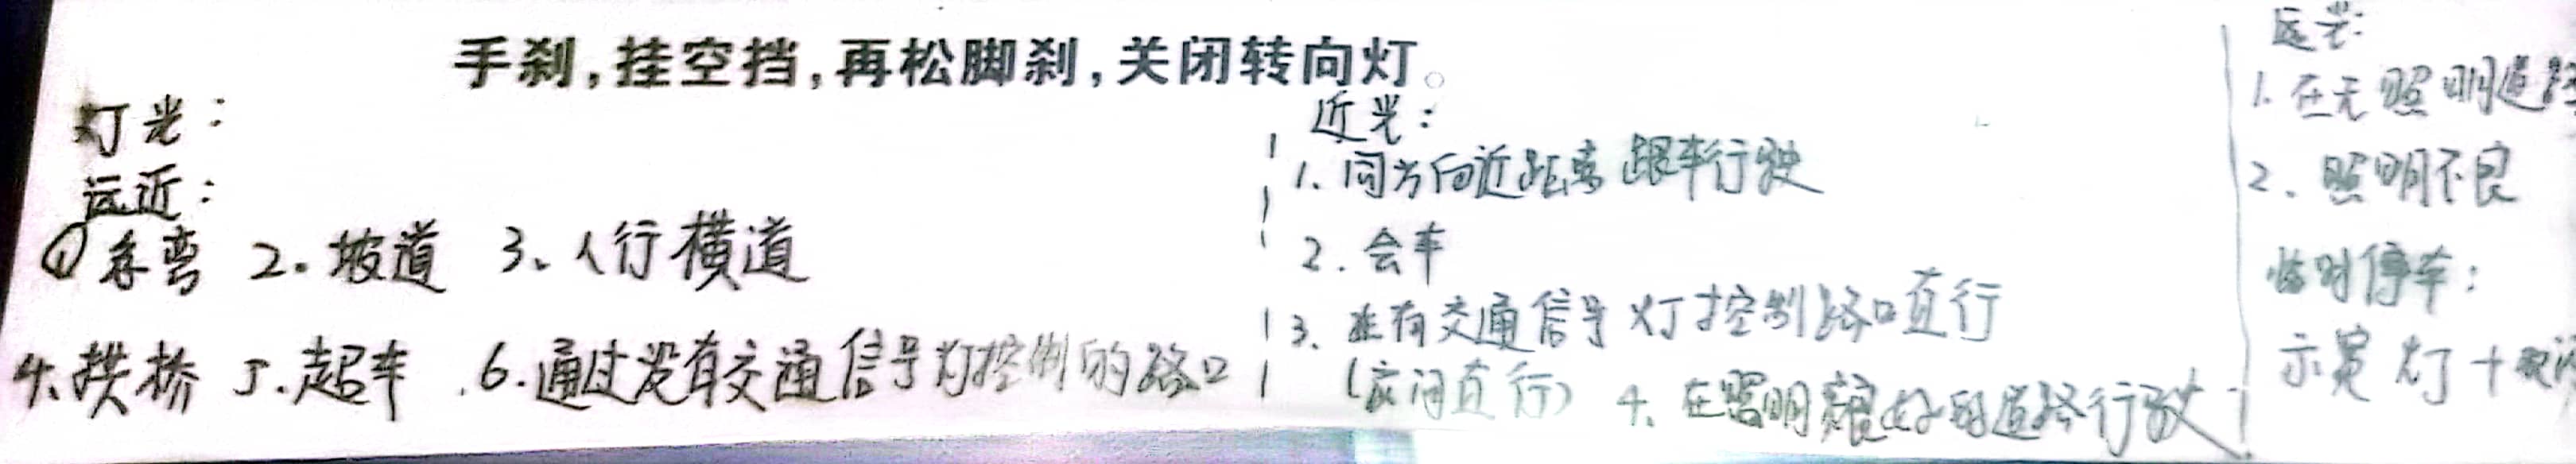 手刹,挂空挡,再松脚刹,关闭转向灯。
灯光:
远近:
①急弯 2.坡道 3、人行横道
4.拱桥 5.超车 6.通过没有交通信号灯控制的路口
近光:
1.同方向近距离跟车行驶
2.会车
3、在有交通信号灯控制路口直行
(夜间直行) 4、在照明良好的道路行驶
远光:
1.在无照明道路
2、照明不良
临时停车:
示宽灯+双